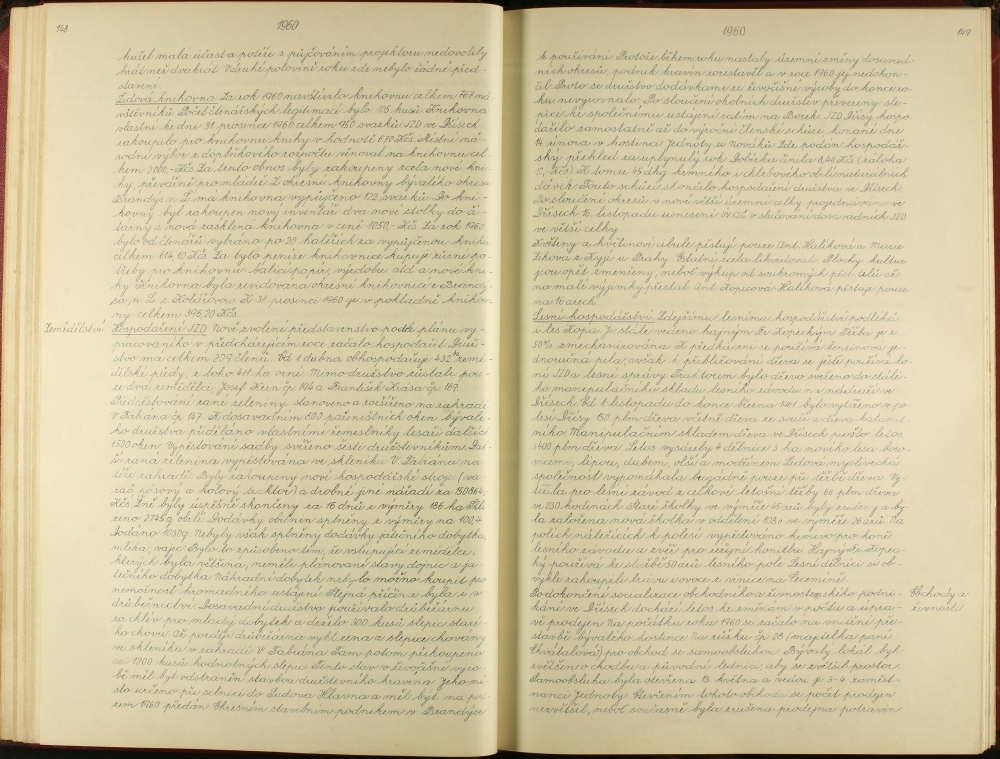 148
1960
kužel malá účast a potíže s půjčováním projektoru nedovolily
hrát než dvakrát. V druhé polovině roku zde nebylo žádné před-
stavení.
Lidová knihovna. Za rok 1960 navštívilo knihovnu celkem 764 ná-
vštěvníků. Počet čtenářských legitimací bylo 105 kusů. Knihovna
vlastní ke dni 31. prosince 1960 celkem 950 svazků. JZD ve Dřísech
zakoupilo pro knihovnu knihy v hodnotě 670 Kčs. Místní ná-
rodní výbor z doplňkového rozpočtu věnoval na knihovnu cel-
kem 2000,- Kčs. Za tento obnos byly zakoupeny zcela nové kni-
hy, převážně pro mládež. Z okresní knihovny bývalého okresu
Brandýs n. L. má knihovna vypůjčeno 122 svazků. Do kni-
hovny byl zakoupen nový inventář dva nové stolky do či-
tárny a nová zasklená knihovna v ceně 1050,- Kčs. Za rok 1960
bylo od čtenářů vybráno po 20 haléřích za vypůjčenou knihu
celkem 614,10 Kčs. Za tyto peníze knihovnice kupuje různé po-
třeby pro knihovnu: balicí papír, výzdobu atd. a nové kni-
hy. Knihovna byla revidována okresní knihovnicí z Brandý-
sa n. L. s. Kolářovou. K 31. prosinci 1960 je v pokladně knihov-
ny celkem 396,20 Kčs.
Zemědělství
Hospodaření JZD. Nově zvolené představenstvo podle plánu vy-
pracovaného v předcházejícím roce začalo hospodařit. Druž-
stvo má celkem 209 členů. Od 1. dubna obhospodařuje 432 ha země-
dělské půdy, z toho 401 ha orné. Mimo družstvo zůstali pou-
ze dva zemědělci Josef Kern čp. 174 a František Krása čp. 169.
Předpěstování rané zeleniny stanoveno a rozšířeno na zahradě
V. Fábiána čp. 147. K dosavadním 500 pařeništních oken bývalé-
ho družstva přiděláno vlastními řemeslníky tesaři dalších
1500 oken. Vypěstování sadby svěřeno šesti družstevníkům. Dal-
ší raná zelenina vypěstována ve skleníku V. Fábiána na
téže zahradě. Byly zakoupeny nové hospodářské stroje (va-
zač, kosový a kolový traktor) a drobné jiné nářadí za 150864,-
Kčs. Žně byly úspěšně skončeny za 16 dnů z výměry 136 ha. Skli-
zeno 2745 q obilí. Dodávky obilnin splněny z výměry na 100,4.
Dodáno 1030 q. Nebyly však splněny dodávky jatečního dobytka,
mléka, vajec. Bylo to způsobeno tím, že vstupující zemědělci,
kterých byla většina, neměli plánované stavy dojnic a ja-
tečního dobytka. Náhradní dobytek nebylo možno koupit pro
nemožnost hromadného ustájení. Stejná příčina byla i v
drůbežnictví. Dosavadní družstvo používalo drůbežárnu
za chlév pro mladý dobytek a drželo 300 kusů slepic staré-
ho chovu. Až později drůbežárna vyklizena a slepice chovány
ve skleníku v zahradě V. Fábiána. Tam potom přikoupeno
asi 1200 kusů hodnotných slepic. Tento stav v živočišné výro-
bě měl být odstraněn stavbou družstevního kravína. Jeho mí-
sto určeno při silnici do Sudova Hlavna a měl být na po-
zim 1960 předán Okresním stavebním podnikem v Brandýse
1960
149
k používání. Protože během roku nastaly územní změny dosavad-
ních okresů, podnik kravín rozestavěl a v roce 1960 jej nedokon-
čil. Proto se družstvo dodávkami ze živočišné výroby do konce ro-
ku nevyrovnalo. Po sloučení okolních družstev převezeny sle-
pice ke společnému ustájení zatím na Borek. JZD Dřísy hospo-
dařilo samostatně až do výroční členské schůze, konané dne
14. února v hostinci Jednoty u Nováků. Zde podán hospodář-
ský přehled za uplynulý rok. Dobírka činila 8,40 Kčs (záloha
9,- Kčs). K tomu 45 dkg krmného i chlebového obilí naturálních
dávek. Touto schůzí skončilo hospodaření družstva ve Dřísech.
Po sloučení okresů v nové větší územní celky projednáváno ve
Dřísech 16. listopadu usnesení ÚV KSČ o slučování dosavadních JZD
ve větší celky.
Květiny a květinové cibule pěstují pouze Ant. Halíková a Marie
Zíková z Kyjí u Prahy. Ostatní zcela likvidoval. Plochy kultur
jsou opět zmenšeny, neboť výkup od soukromých pěstitelů až
na malé výjimky přestal. Ant. Kopsová-Halíková pěstuje pouze
na 16 arech.
Lesní hospodářství. Zdejšímu lesnímu hospodářství podléhá
i les Kopa. Je stále vedeno hajným Fr. Kopeckým. Těžba je z
50% zmechanizována. K předkácení se používá benzinová je-
dnoručná pila, avšak k přibližování dřeva se ještě používá ko-
ní JZD a lesní správy. Traktorem bylo dřevo svezeno do stálé-
ho manipulačního skladu lesního závodu na nádraží ve
Dřísech. Od 1. listopadu do konce března 1961 bylo vytěženo v po-
lesí Dřísy 150 plm dřeva včetně dřeva ze souší a dřeva kalamit-
ního. Manipulačním skladem dřeva ve Dřísech prošlo letos
1400 plm dřeva. Letos vysázely 4 dělnice 5 ha nového lesa boro-
vicemi, lípou, dubem, olší a modřínem. Lidová myslivecká
společnost vypomáhala brigádně pouze při těžbě dřeva. Vy-
těžila pro lesní závod z celkové letošní těžby 66 plm dřeva
ve 230 hodinách. Staré školky ve výměře 45 arů byly zrušeny a by-
la založena nová školka v oddělení 108 o ve výměře 26 arů. Na
polích náležících k polesí vypěstováno krmivo pro koně
lesního závodu a zvěř pro režijní honitbu. Hajný Fr. Kopec-
ký používá ke službě 50 arů lesního pole. Lesní dělníci si ob-
vykle zakoupili trávu z ovoce z vinice na Cecemíně.
Obchody a
živnosti
Po dokončení socializace obchodního a živnostenského podni-
kání ve Dřísech dochází letos ke změnám v počtu a úpra-
vě prodejen. Na počátku roku 1960 se začalo na vnitřní pře-
stavbě bývalého hostince Na růžku čp. 28 (majitelka paní
Chvátalová) pro obchod se samoobsluhou. Bývalý lokál byl
zvětšen o chodbu a původní lednici, aby se zvětšil prostor.
Samoobsluha byla otevřena 13. května a vedou ji 3-4 zaměst-
nanci Jednoty. Otevřením tohoto obchodu se počet prodejen
nezvětšil, neboť současně byla zrušena prodejna potravin